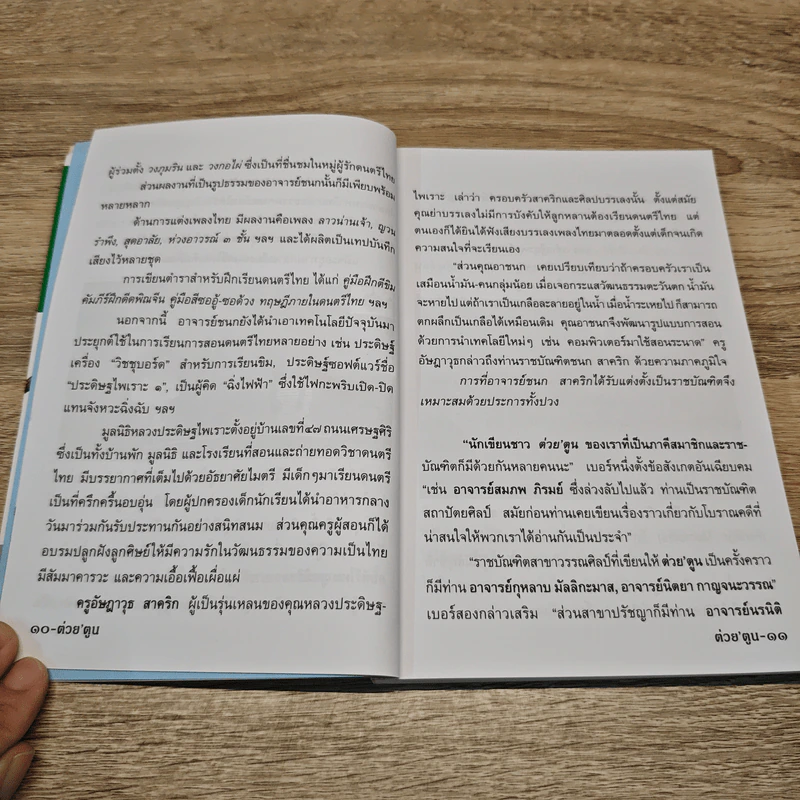 ผู้ร่วมตั้ง วงภุมริน และ วงกอไผ่ ซึ่งเป็นที่ชื่นชมในหมู่ผู้รักดนตรีไทย
ส่วนผลงานที่เป็นรูปธรรมของอาจารย์ชนกนั้นก็มีเพียบพร้อม
หลายหลาก
ด้านการแต่งเพลงไทย มีผลงานคือเพลง ลาวน่านเจ้า, ญวน
รำพึง, สุดอาลัย, ห่วงอาวรณ์ ๓ ชั้น ฯลฯ และได้ผลิตเป็นเทปบันทึก
เสียงไว้หลายชุด
การเขียนตำราสำหรับฝึกเรียนดนตรีไทย ได้แก่ คู่มือฝึกตีขิม
คัมภีร์ฝึกดีดพิณจีน คู่มือสีซออู้-ซอด้วง ทฤษฎีภายในดนตรีไทย ฯลฯ
นอกจากนี้ อาจารย์ชนกยังได้นำเอาเทคโนโลยีปัจจุบันมา
ประยุกต์ใช้ในการเรียนการสอนดนตรีไทยหลายอย่าง เช่น ประดิษฐ์
เครื่อง “วิชชุบอร์ด” สำหรับการเรียนขิม, ประดิษฐ์ซอฟต์แวร์ชื่อ
“ประดิษฐไพเราะ ๑”, เป็นผู้คิด “ฉิ่งไฟฟ้า” ซึ่งใช้ไฟกะพริบเปิด-ปิด
แทนจังหวะฉิ่งฉับ ฯลฯ
มูลนิธิหลวงประดิษฐไพเราะตั้งอยู่บ้านเลขที่๔๗ ถนนเศรษฐศิริ
ซึ่งเป็นทั้งบ้านพัก มูลนิธิ และโรงเรียนที่สอนและถ่ายทอดวิชาดนตรี
ไทย มีบรรยากาศที่เต็มไปด้วยอัธยาศัยไมตรี มีเด็กๆมาเรียนดนตรี
เป็นที่ครึกครื้นอบอุ่น โดยผู้ปกครองเด็กนักเรียนได้นำอาหารกลาง
วันมาร่วมกันรับประทานกันอย่างสนิทสนม ส่วนคุณครูผู้สอนก็ได้
อบรมปลูกฝังลูกศิษย์ให้มีความรักในวัฒนธรรมของความเป็นไทย
มีสัมมาคารวะ และความเอื้อเฟื้อเผื่อแผ่
ครูอัษฎาวุธ สาคริก ผู้เป็นรุ่นเหลนของคุณหลวงประดิษฐ-
๑๐-ต่วย'ตูน
ไพเราะ เล่าว่า ครอบครัวสาคริกและศิลปบรรเลงนั้น ตั้งแต่สมัย
คุณย่าบรรเลงไม่มีการบังคับให้ลูกหลานต้องเรียนดนตรีไทย แต่
ตนเองก็ได้ยินได้ฟังเสียงบรรเลงเพลงไทยมาตลอดตั้งแต่เด็กจนเกิด
ความสนใจที่จะเรียนเอง
“ส่วนคุณอาชนก เคยเปรียบเทียบว่าถ้าครอบครัวเราเป็น
เสมือนน้ำมัน-คนกลุ่มน้อย เมื่อเจอกระแสวัฒนธรรมตะวันตก น้ำมัน
จะหายไป แต่ถ้าเราเป็นเกลือละลายอยู่ในน้ำ เมื่อน้ำระเหยไป ก็สามารถ
ตกผลึกเป็นเกลือได้เหมือนเดิม คุณอาชนกจึงพัฒนารูปแบบการสอน
ด้วยการนำเทคโลยีใหม่ๆ เช่น คอมพิวเตอร์มาใช้สอนระนาด” ครู
อัษฎาวุธกล่าวถึงท่านราชบัณฑิตชนก สาคริก ด้วยความภาคภูมิใจ
การที่อาจารย์ชนก สาคริกได้รับแต่งตั้งเป็นราชบัณฑิตจึง
เหมาะสมด้วยประการทั้งปวง
“นักเขียนชาว ต่วย'ตูน ของเราที่เป็นภาคีสมาชิกและราช-
บัณฑิตก็มีด้วยกันหลายคนนะ” เบอร์หนึ่งตั้งข้อสังเกตอันเฉียบคม
“เช่น อาจารย์สมภพ ภิรมย์ ซึ่งล่วงลับไปแล้ว ท่านเป็นราชบัณฑิต
สถาปัตยศิลป์ สมัยก่อนท่านเคยเขียนเรื่องราวเกี่ยวกับโบราณคดีที่
น่าสนใจให้พวกเราได้อ่านกันเป็นประจำ”
“ราชบัณฑิตสาขาวรรณศิลป์ที่เขียนให้ ต่วย'ตูน เป็นครั้งคราว
ก็มีท่าน อาจารย์กุหลาบ มัลลิกะมาส, อาจารย์นิตยา กาญจนะวรรณ”
เบอร์สองกล่าวเสริม “ส่วนสาขาปรัชญาก็มีท่าน อาจารย์นรนิติ
ต่วย'ตูน-๑๑